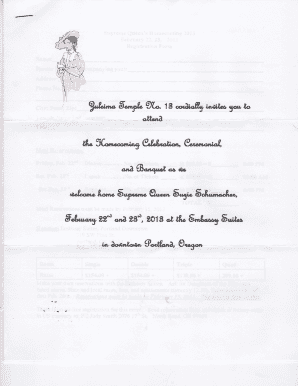 Zuleima Temple No. 13 cordially invites you to
attend
the Homecoming Celebration, Ceremonial,
and Banquet as we
welcome home Supreme Queen Suzie Schumacher,
February 22nd and 23rd, 2013 at the Embassy Suites
in downtown Portland, Oregon